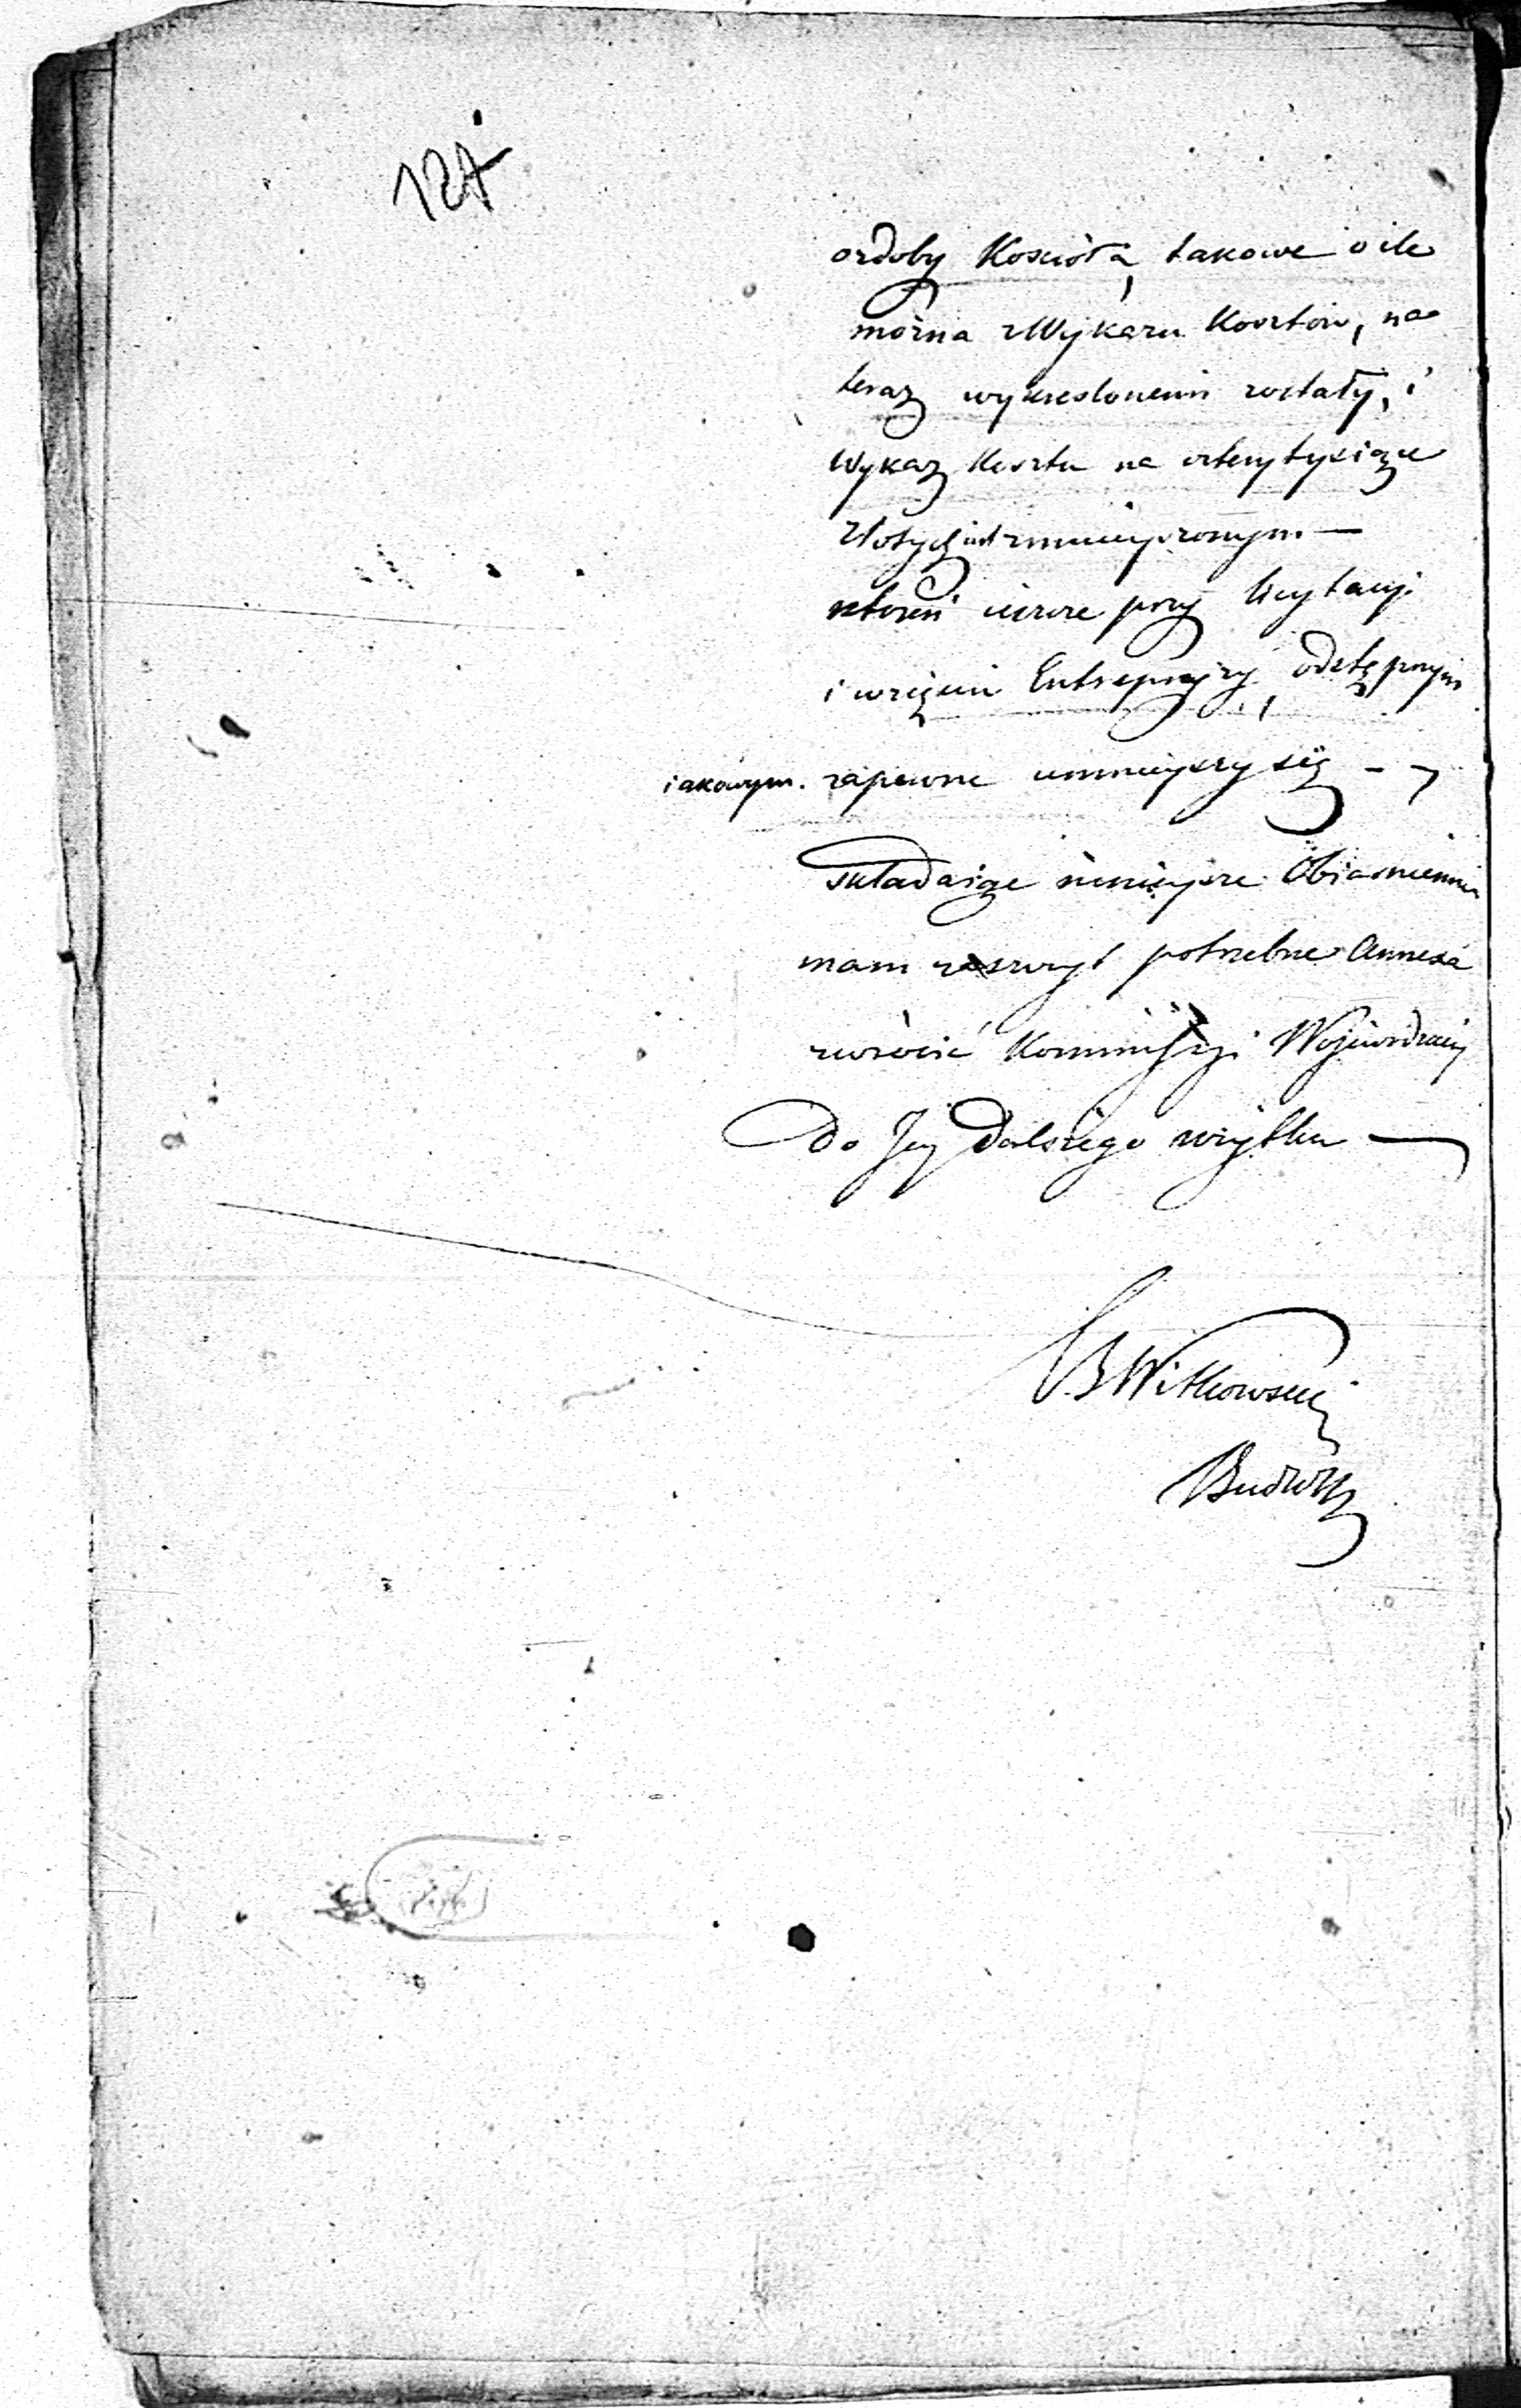 127
ozdoby Kościoła, takowe o ile
można z Wykazu Kosztów, na
teraz wykreslonemi zostały, i
Wykaz Kosztu na cztery tysiące
złotych iest zmnieyszonym —
któren ieszcze przy licytacyi
i wzięciu Entrepryzy, odstępnym
iakowym. zapewne umnieyszy się —
Składaiąc ninieysze Obiasnienie
mam zaszczyt potrzebne Annexa
zwrócić Kommissyi Wojewódzkiey
do Jey dalszego użytku —
B Witkowski
Budwn